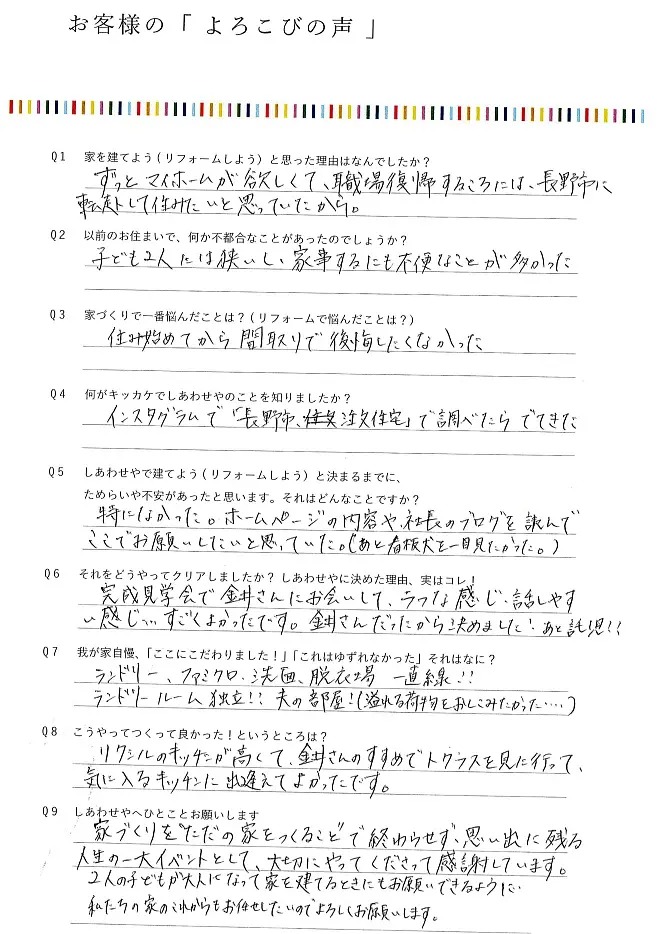 お客様の「 よろこびの声 」
Q1 家を建てよう(リフォームしよう)と思った理由はなんでしたか?
ずっとマイホームが欲しくて、職場復帰するころには、長野市に
転勤して住みたいと思っていたから。
Q2 以前のお住まいで、何か不都合なことがあったのでしょうか?
子ども2人には狭いし、家事するにも不便なことが多かった
Q3 家づくりで一番悩んだことは?(リフォームで悩んだことは?)
住み始めてから間取りで後悔したくなかった
Q4 何がキッカケでしあわせやのことを知りましたか?
インスタグラムで「長野市、注文住宅」で調べたらでてきた
Q5 しあわせやで建てよう(リフォームしよう)と決まるまでに、
ためらいや不安があったと思います。それはどんなことですか?
特になかった。ホームページの内容や、社長のブログを読んで
ここでお願いしたいと思っていた。(あと看板犬を一目見たかった。)
Q6 それをどうやってクリアしましたか? しあわせやに決めた理由、実はコレ!
完成見学会で金井さんにお会いして、ラフな感じ、話しやす
い感じ…すごくよかったです。金井さんだったから決めました!あと託児!!
Q7 我が家自慢、「ここにこだわりました!」「これはゆずれなかった」それはなに?
ランドリー、ファミクロ、洗面、脱衣場 一直線!!
ランドリールーム独立!! 夫の部屋!(溢れる荷物をおしこみたかった…‥)
Q8 こうやってつくって良かった!というところは?
リクシルのキッチンが高くて、金井さんのすすめでトクラスを見に行って、
気に入るキッチンに出逢えてよかったです。
Q9 しあわせやへひとことお願いします
家づくりを"ただの家をつくること"で終わらせず、思い出に残る
人生の一大イベントとして、大切にやってくださって感謝しています。
2人の子どもが大人になって家を建てるときにもお願いできるように
私たちの家のこれからもお任せしたいのでよろしくお願いします。